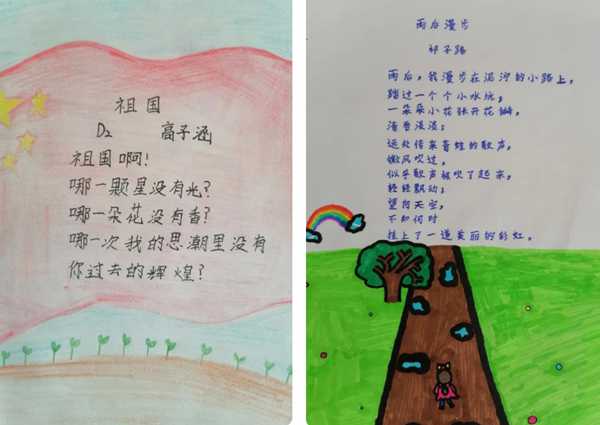 祖国
D2 高子涵
祖国啊!
哪一颗星没有光?
哪一朵花没有香?
哪一次我的思潮里没有
你过去的辉煌?
雨后漫步
祁子路
雨后,我漫步在泥泞的小路上,
踏过一个个小水坑;
一朵朵小花张开花瓣,
清香淡淡;
远处传来青蛙的歌声,
微风吹过,
似乎歌声被吹了起来,
轻轻飘动;
望向天空,
不知何时
挂上了一道美丽的彩虹。